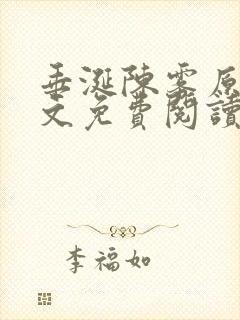 垂涎陳霧原
文免費閱讀
李福如